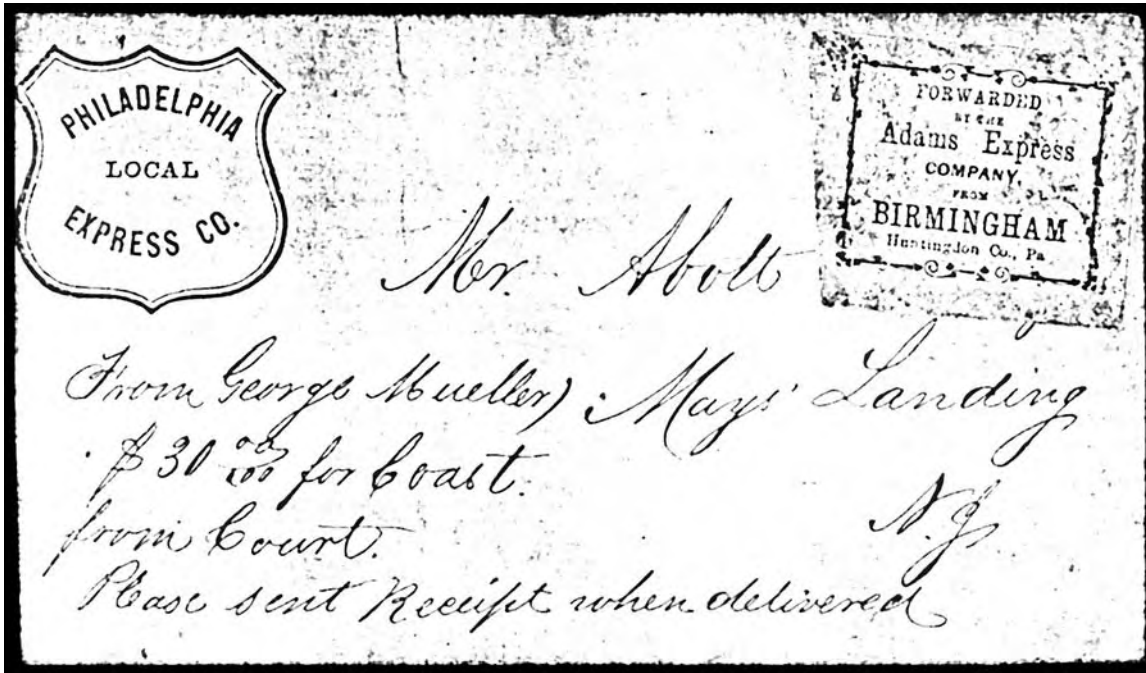 PHILADELPHIA
LOCAL
EXPRESS CO.
FORWARDED
BY THE
Adams Express
COMPANY,
FROM
BIRMINGHAM
Huntingdon Co., Pa
Mr. Abott
From George Mueller) Mays' Landing
$30 00/100 for Coast.
N.J
from Court.
Please sent Receipt when delivered